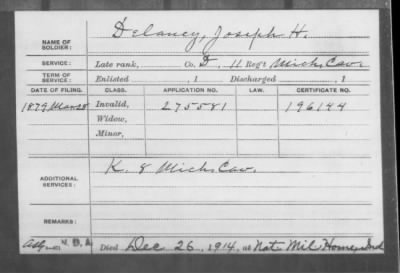 NAME OF SOLDIER: Delaney, Joseph H.
SERVICE: Late rank, Co. D, 11 Reg't Mich. Cav.
TERM OF SERVICE: Enlisted , 1 Discharged , 1
DATE OF FILING. CLASS. APPLICATION NO. LAW. CERTIFICATE NO.
1879 Mar Invalid, 275581 196144
Widow,
Minor,
ADDITIONAL SERVICES: K. 8 Mich. Cav.
REMARKS:
Died Dec 26, 1914, at Nat Mil Home, Ind